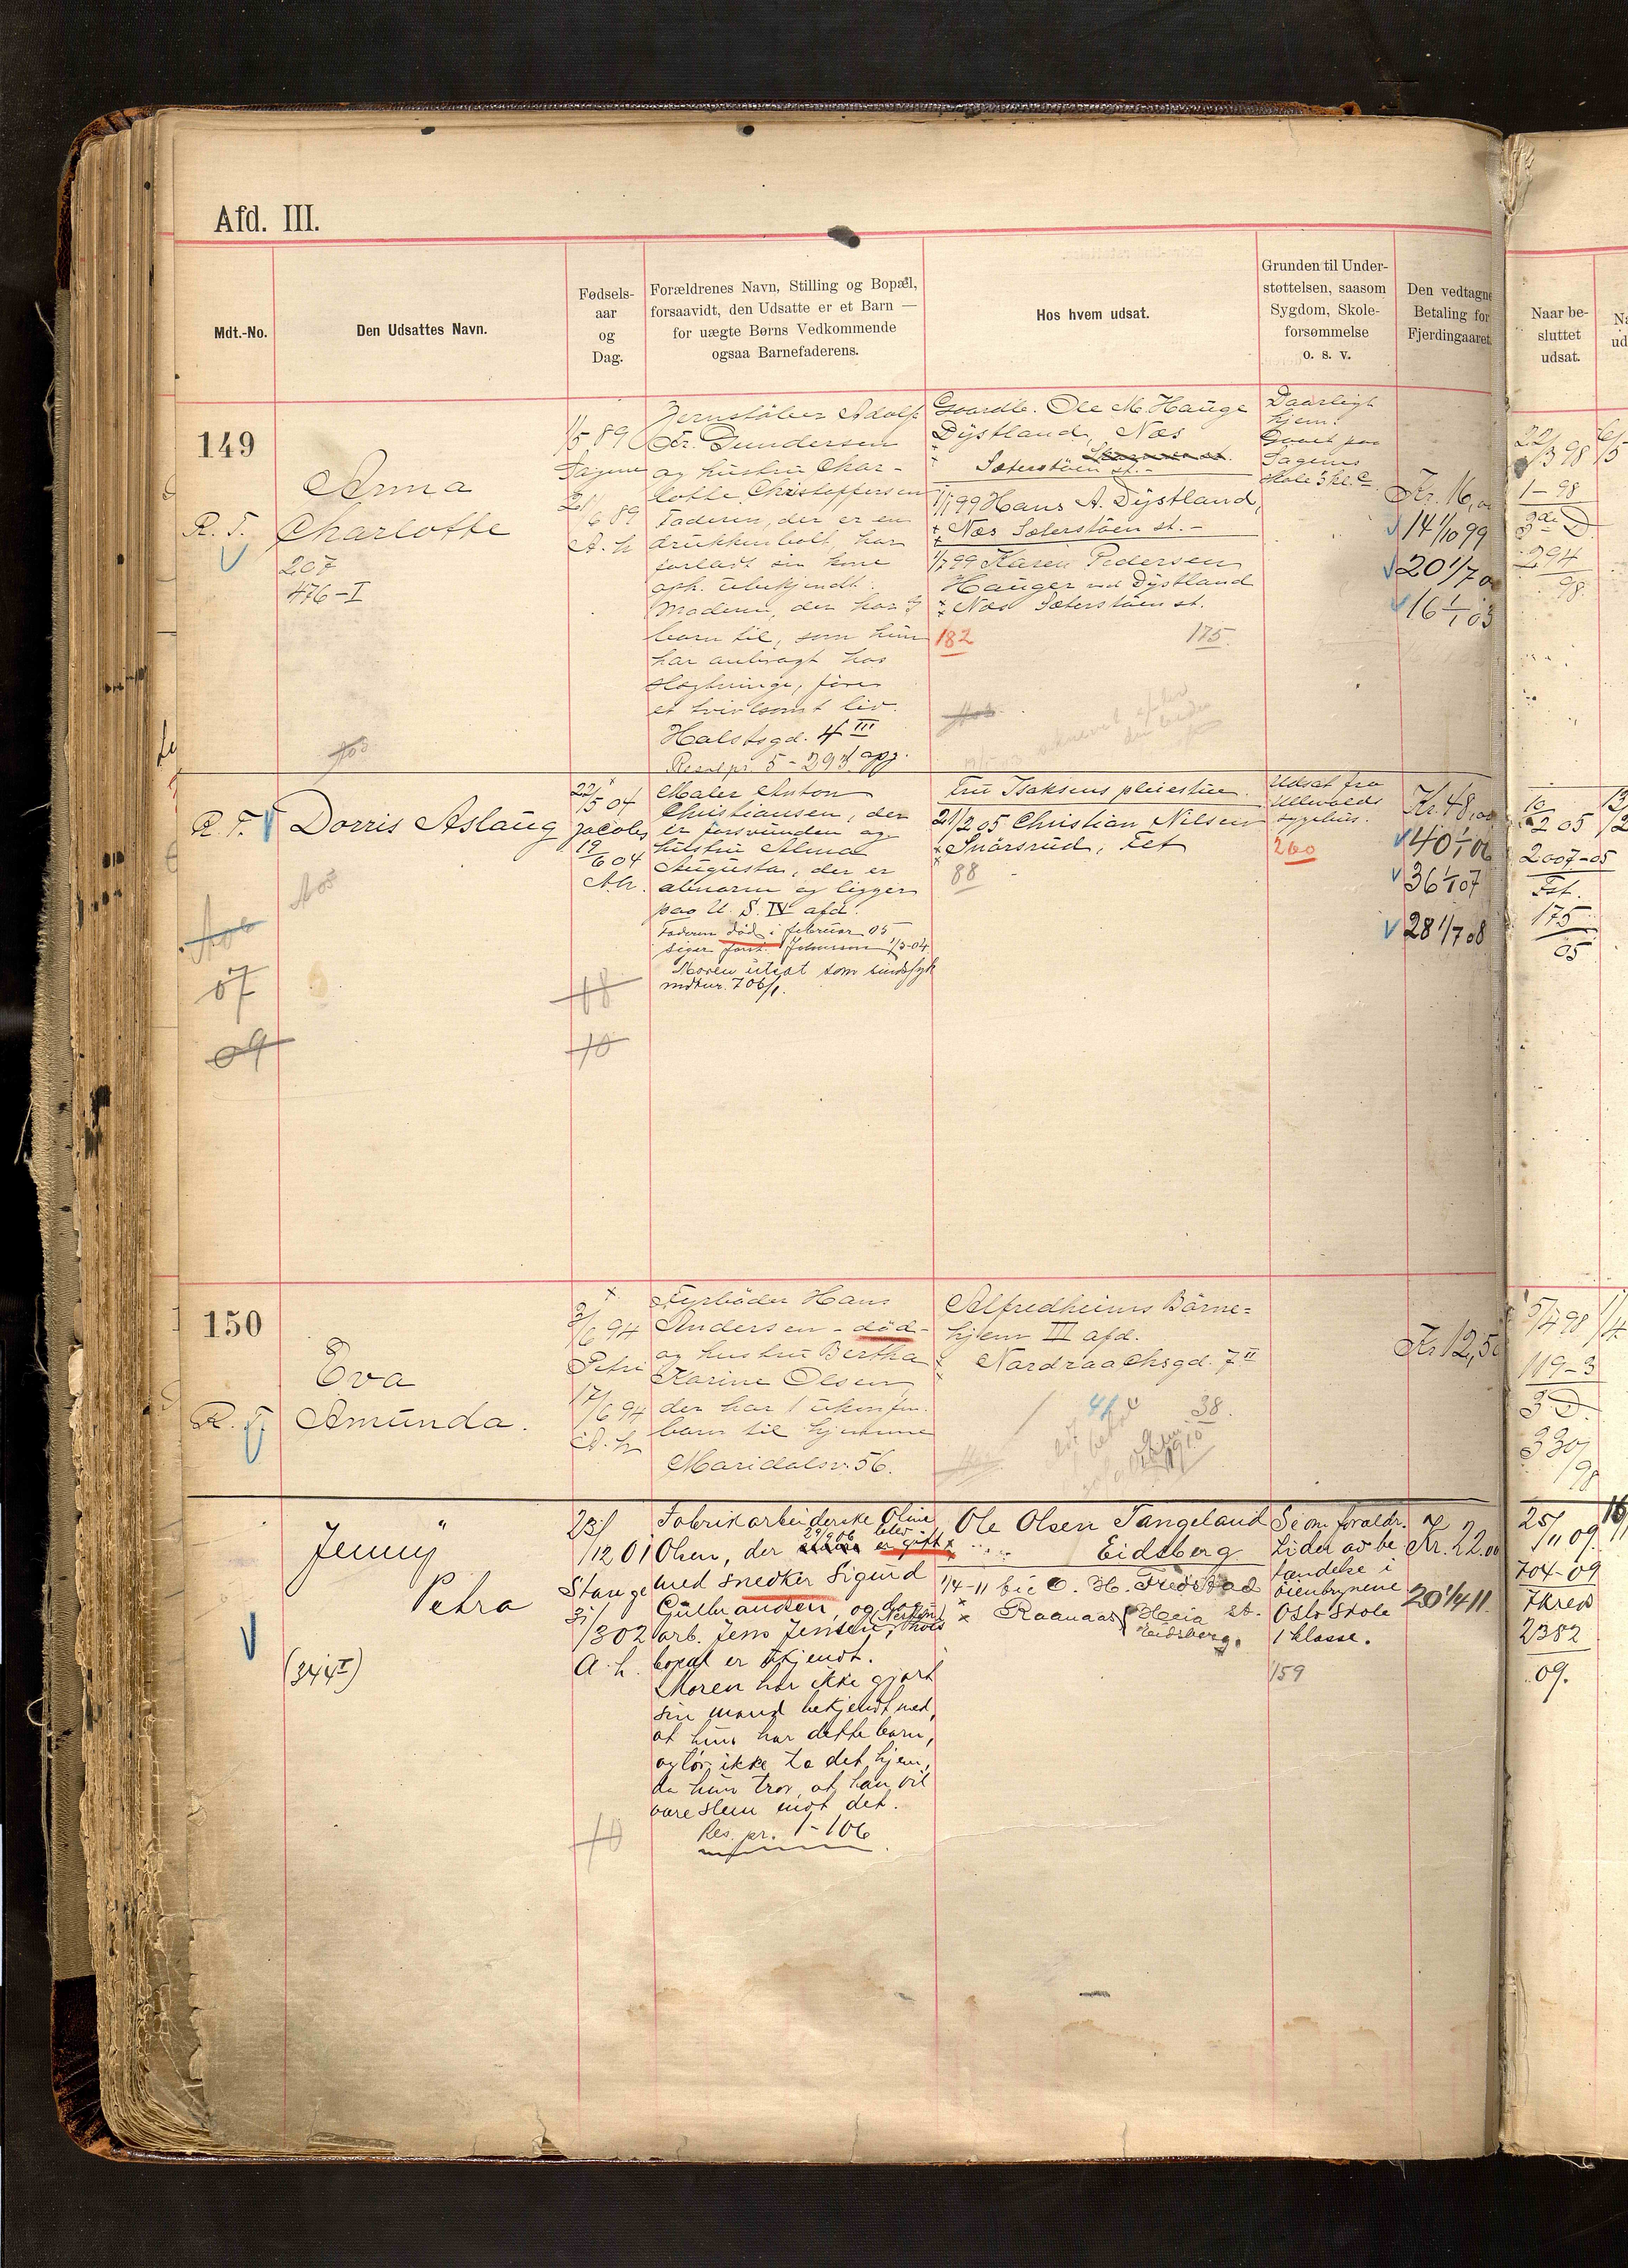 Afd. III.
Mdt.-No.
Den Udsattes Navn.
Fødsels-
aar
og
Dag.
Forældrenes Navn, Stilling og Bopæl,
forsaavidt, den Udsatte er et Barn —
for uægte Børns Vedkommende
ogsaa Barnefaderens.
Hos hvem udsat.
Grunden til Under-
støttelsen, saasom
Sygdom, Skole-
forsømmelse
o. s. v.
Den vedtagne
Betaling for
Fjerdingaaret.
Naar be-
sluttet
udsat.
149
R. F.
Anna
Charlotte
207
476-I
1/5 89
Sagene
A. h
Jernstøber Adolf
Fr. Gundersen
og hustru Char-
lotte Christoffersen
Faderen, der er en
drukkenbolt, har
forladt sin kone
oph. ubekjendt.
Moderen, der har
barn til, som hun
har anbragt hos
slægtninge, fører
et tvivlsomt liv.
Halsdsgd. 4 III
Resolpr. 5-293
Gaardb. Ole M. Hauge
Dystland, Næs
Sæterstøen st.-
1/1 99 Hans A. Dystland,
Næs Sæterstøen st.-
1/7 99 Karen Pedersen
Hauger ved Dystland
Næs Sæterstøen st.
182
175
Daarligt
hjem.
Gaaet paa
Sagenes
skole 3 kl.
Kr. 16,00
14 1/10 99
20 1/7 0
16 1/1 03
22/3 98
1-98
294
98.
R. F.
Dorris Aslaug
07
09
22/5 04
Jacobs
19/6 04
A.h.
18
10
Maler Anton
Christiansen, der
er forsvunden og
hustru Alma
Augusta, der er
abnorm og ligger
paa U. S. IV afd.
Faderen død i februar 05
siger forst. Johnsson 1/3-04
Moren utsat som sindssyk
mdtnr. 706/1.
Fru Isaksens pleiestue
21/2 05 Christian Nilsen
Snårsrud, Fet
88
Udsat fra
Ullevolds
sygehus.
260
Kr. 48,00
40 1/1 06
36 1/1 07
28 1/7 08
10/2 05
2007-05
Fst.
175
05
150
R. F.
Eva
Amunda.
3/6 94
Petri
17/6 94
A. h
Fyrbøder Hans
Andersen - død -
og hustru Bertha
Karine Olsen,
der har 1 ukonfirm.
barn til hjemme
Maridalsv. 56.
Alfredheims Børne=
hjem III afd.
Nordraachsgd. 7 II
38.
Kr 12,50
5/4 98
119-3
3 D.
330/98
Jenny
Petra
(344 I)
23/12 01
Stange
3/3 02
a. h.
10
Fabrikarbeiderske Oline
Olsen, der 29/9 06 blev er gift
med snedker Sigurd
Gulbrandsen, og
arb. Jens Jensen, hvis
bopæl er ukjendt.
Moren har ikke gjort
sin mand bekjendt med,
at hun har dette barn,
og tør ikke ta det hjem,
da hun tror, at han vil
være slem mot det.
Res. pr. 1-106
Ole Olsen Tangeland
Eidsberg
1/4-11 hie O. H. Fredstad
Raanaas Heia st.
Eidsberg.
Se om foraldr.
Lider av be
tændelse i
øienbrynene
Oslo skole
1 klasse.
159
Kr. 22.00
20 1/4 11.
25/11 09.
704-09
7 kreds
2382
09.